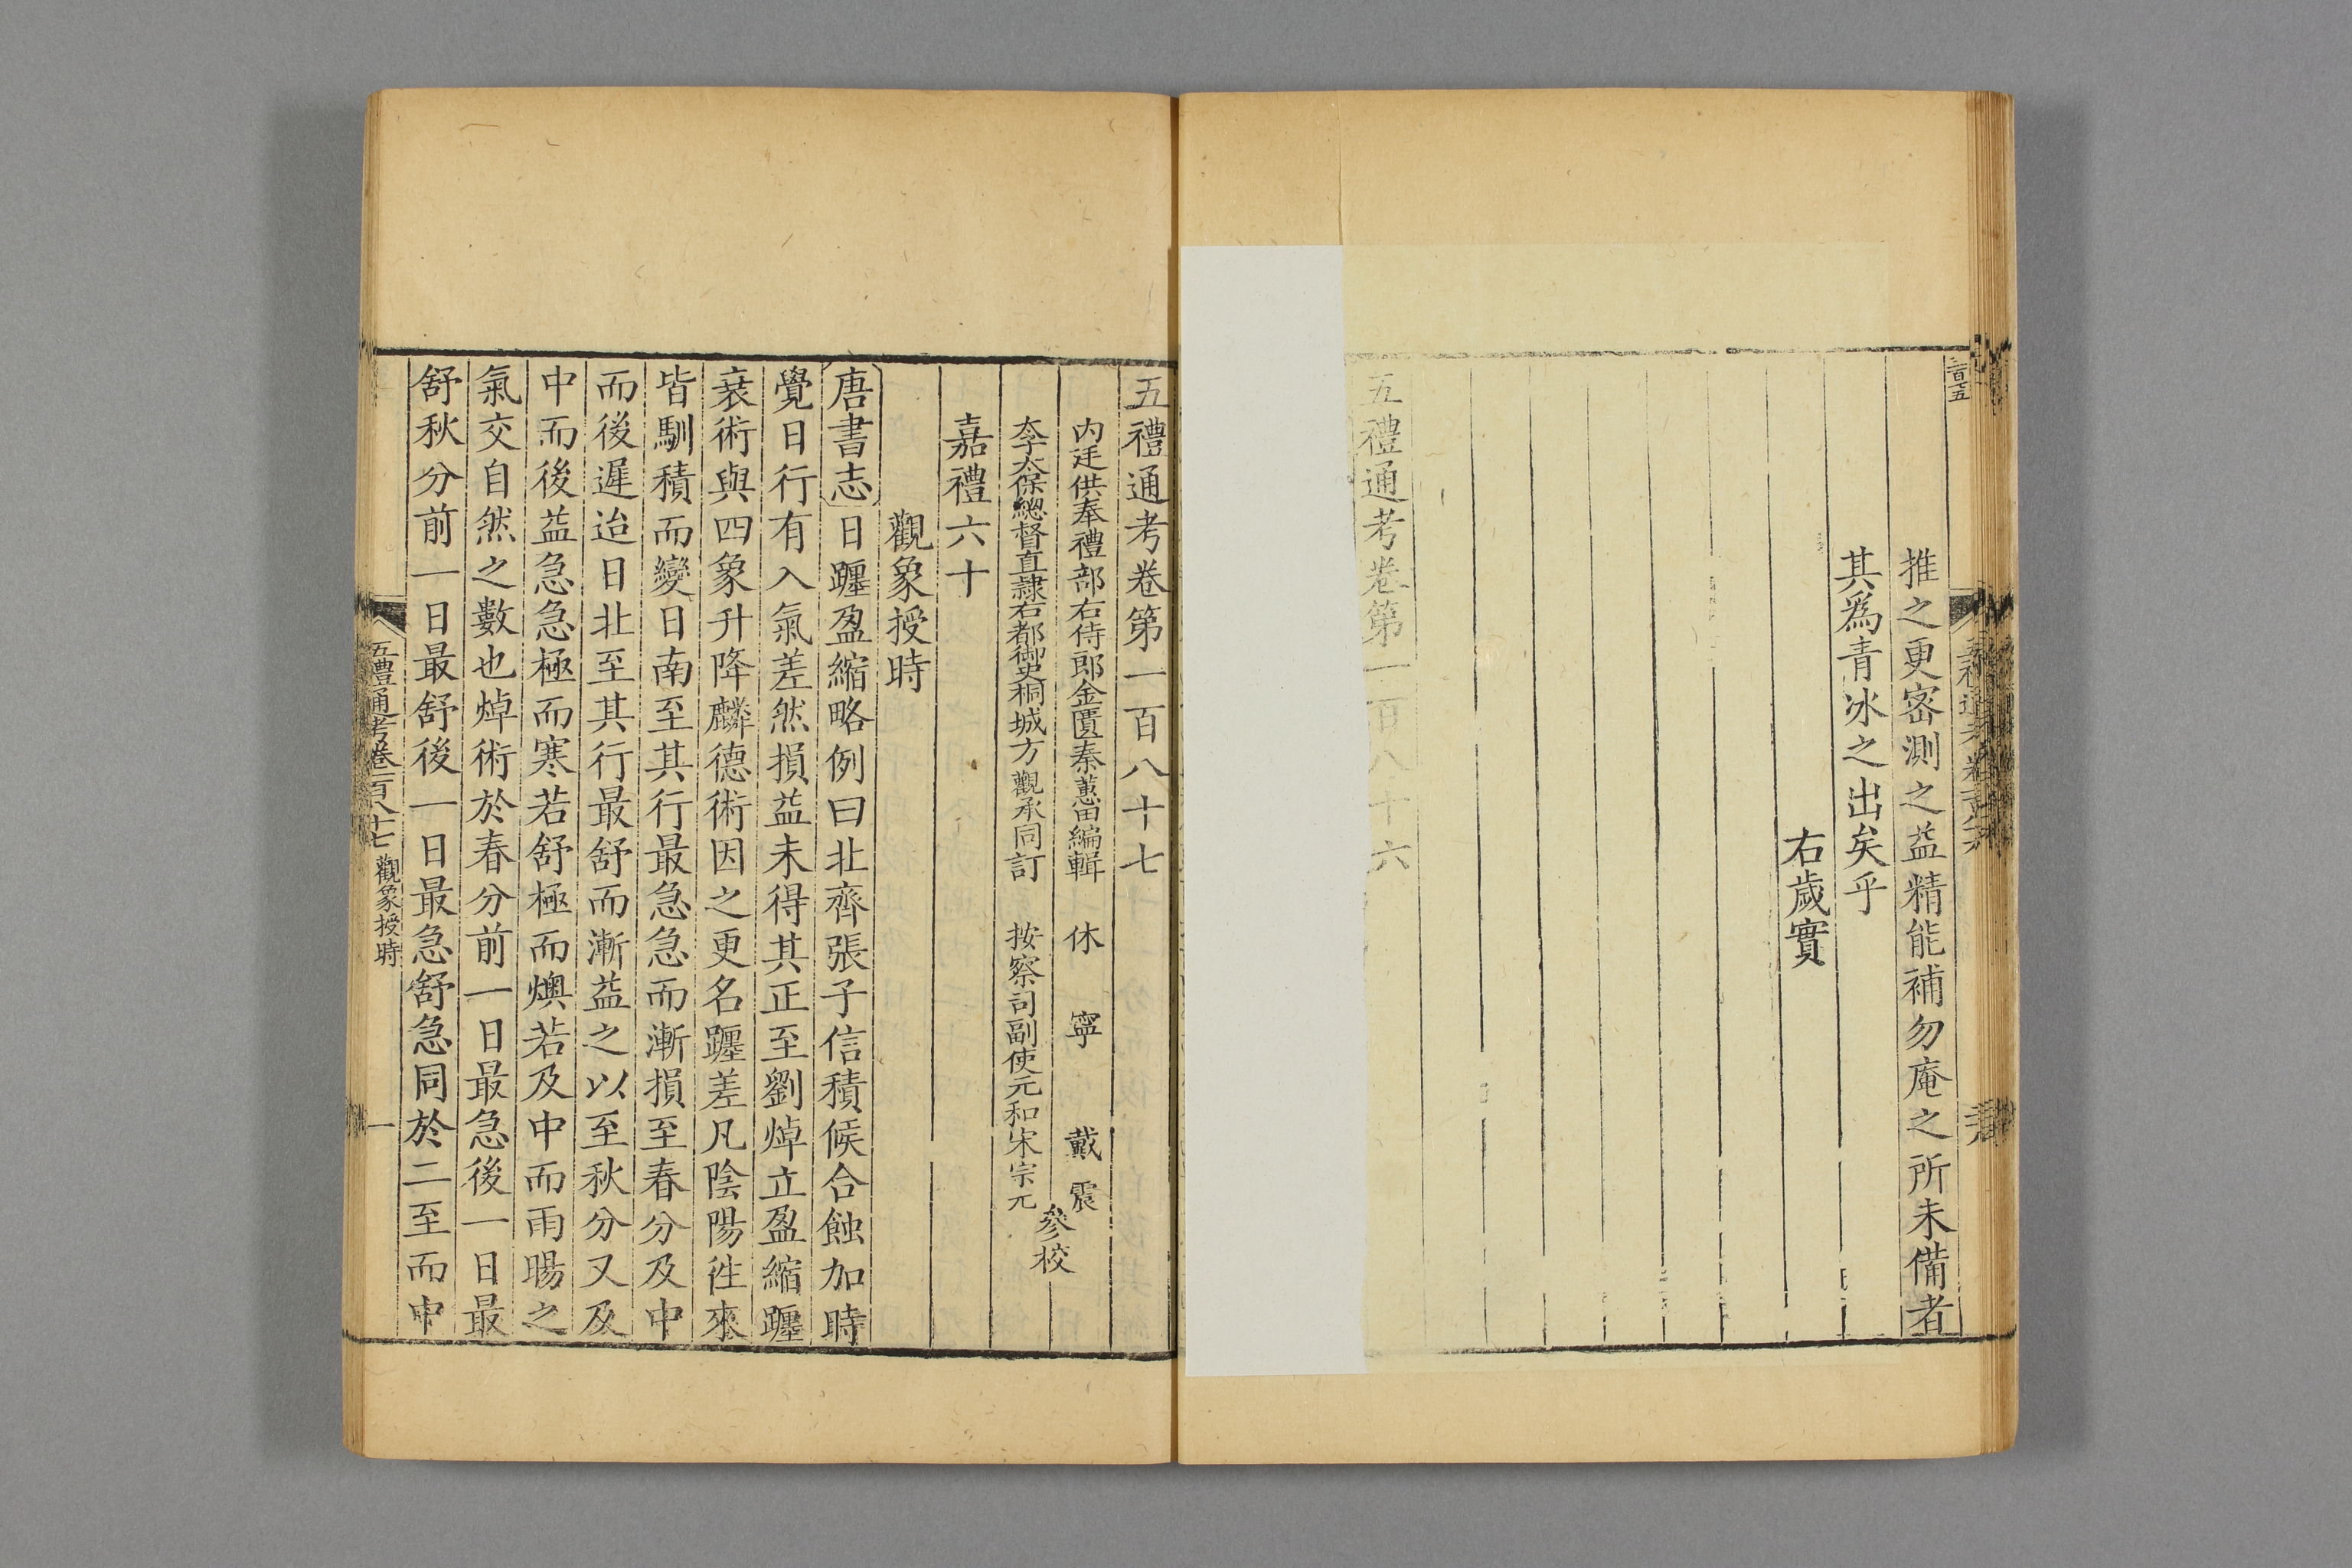 推之更密測之益精能補勿庵之所未備者
其爲青冰之出矣乎
右歲實
五禮通考卷第一百八十六
五禮通考卷第一百八十七
内廷供奉禮部右侍郎金匱秦蕙田編輯
太子太保總督直隸右都御史桐城方觀承同訂
休寧戴震
按察司副使元和宋宗元
參校
嘉禮六十
觀象授時
唐書志日躔盈縮略例曰北齊張子信積候合蝕加時
覺日行有入氣差然損益未得其正至劉焯立盈縮躔
衰術與四象升降麟德術因之更名躔差凡陰陽徃來
皆馴積而變日南至其行最急急而漸損至春分及中
而後遲迨日北至其行最舒而漸益之以至秋分又及
中而後益急急極而寒若舒極而燠若及中而雨暘之
氣交自然之數也焯術於春分前一日最急後一日最
舒秋分前一日最舒後一日最急舒急同於二至而中
五禮通考卷一百八十七 觀象授時
一